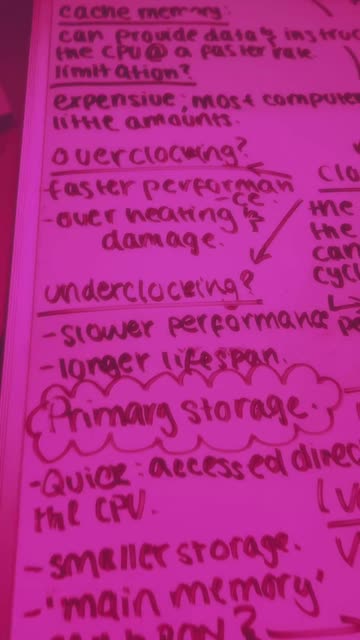 cache memory:
can provide data & instruc
the CPU @ a faster rate
limitation?
expensive; most compute
little amounts.
overclocking?
-faster performan
-ce.
-over heating &
damage.
cla
the
the
can
cycl
underclocking?
-slower performance
-longer lifespan.
Primary storage.
-Quick: accessed direc
the CPU.
-smaller storage.
-'main memory'